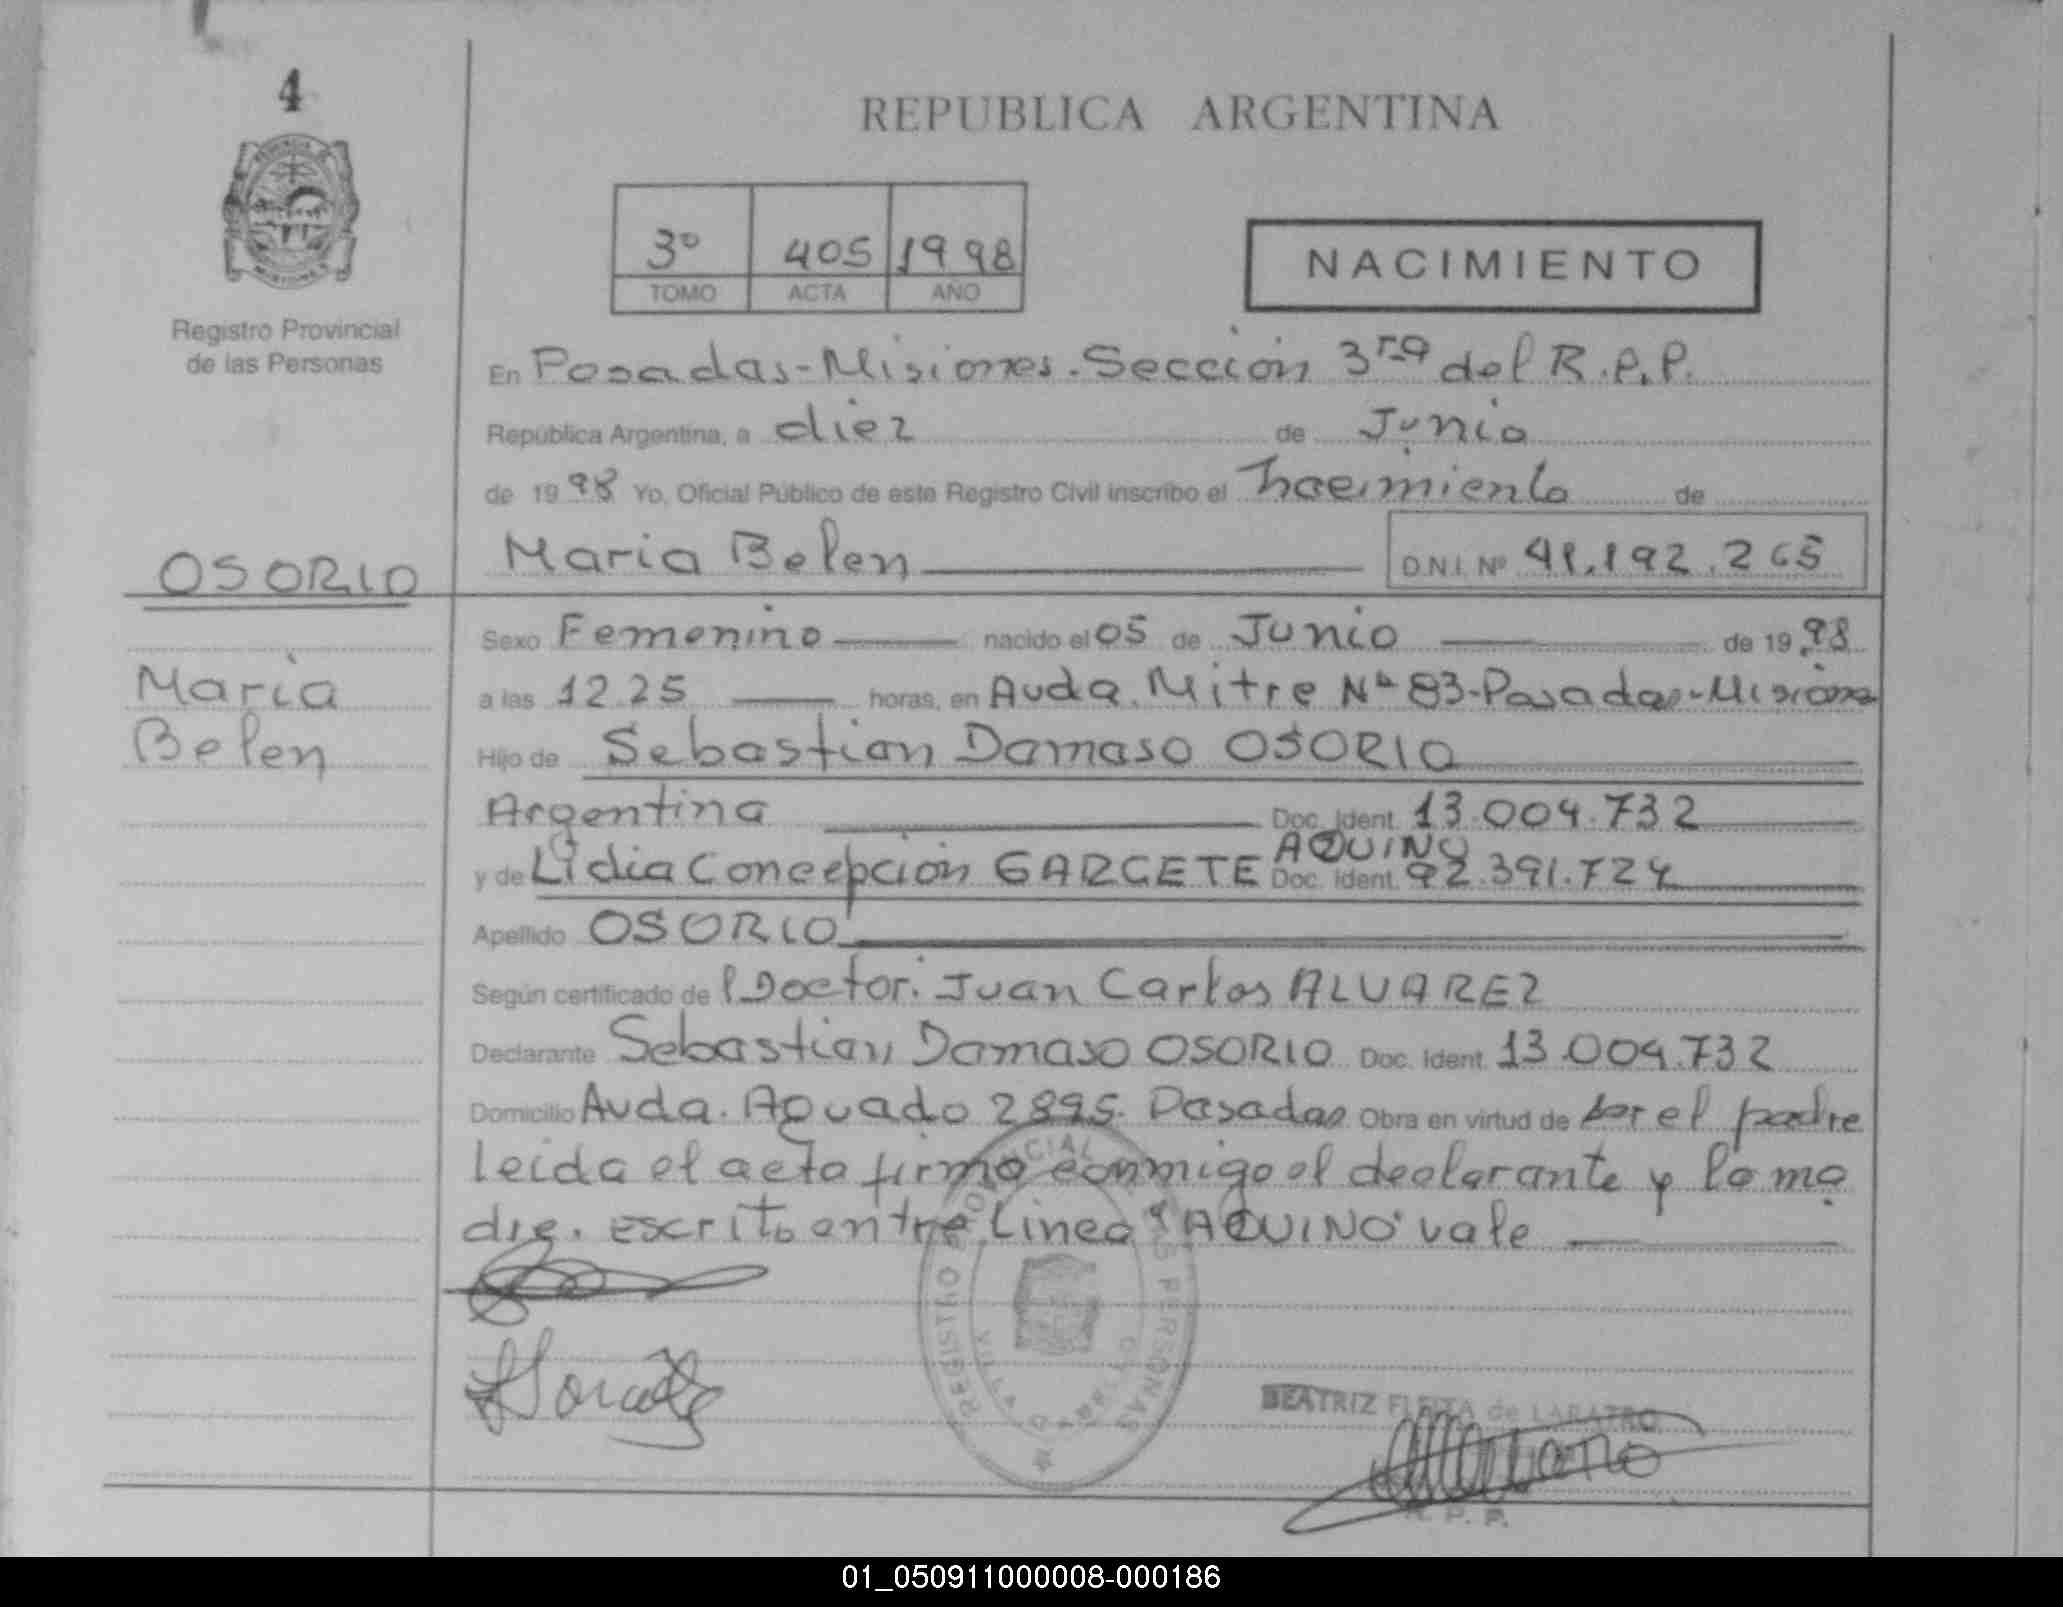 4
REPUBLICA ARGENTINA
3º 405 1998
TOMO ACTA AÑO
NACIMIENTO
Registro Provincial
de las Personas
En Posadas-Misiones. Sección 3ra del R.P.P.
República Argentina, a diez de Junio
de 1998 Yo, Oficial Público de este Registro Civil inscribo el nacimiento de
Maria Belen D.N.I. Nº 41.192.265
OSORIO
Maria
Belen
Sexo Femenino nacido el 05 de Junio de 1998
a las 12 25 horas, en Avda. Mitre Nº 83-Posadas-Misiones
Hijo de Sebastian Damaso OSORIO
Argentina Doc. Ident. 13.004.732
AQUINO
y de Lidia Concepción GARCETE Doc. Ident. 92.391.724
Apellido OSORIO
Según certificado del Doctor: Juan Carlos ALVAREZ
Declarante Sebastian Damaso OSORIO Doc. Ident. 13.004.732
Domicilio Avda. Aguado 2895. Posadas Obra en virtud de ser el padre
leida el acta firma conmigo el declarante y la ma
dre. escrito entre linea "AQUINO" vale
REGISTRO PROVINCIAL DE LAS PERSONAS
BEATRIZ FLEITA de
R. P. P.
01_050911000008-000186